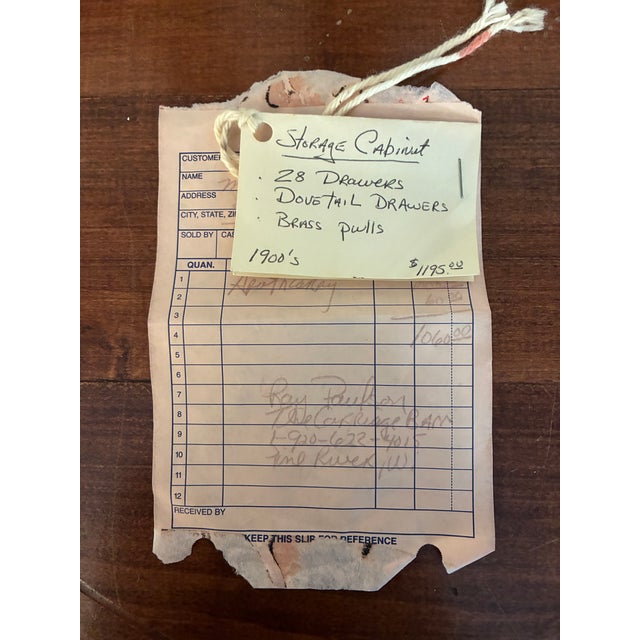 Storage Cabinut
· 28 Drawers
· Dovetail Drawers
· Brass pulls
1900's $1195.00
CUSTOMER
NAME
ADDRESS
CITY, STATE, ZI
SOLD BY CAS
QUAN.
1
2
3
4 1060.00
5
6
7 Ray
8 The Carriage Barn
9 1-920-622-4015
10 River,
11
12
RECEIVED BY
KEEP THIS SLIP FOR REFERENCE